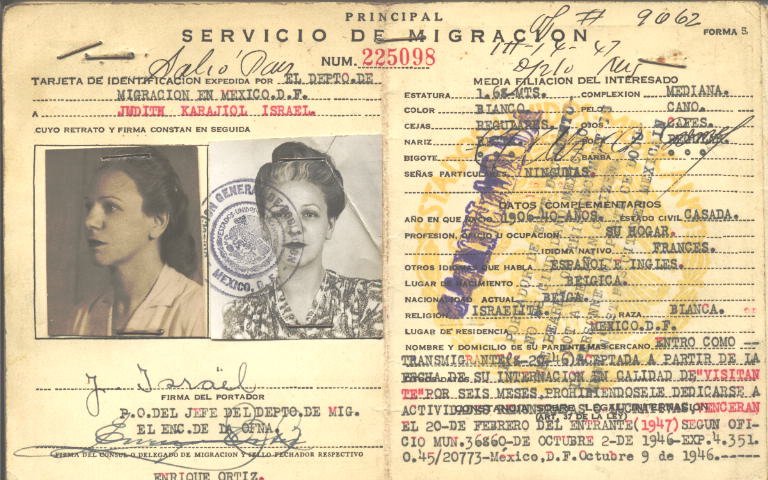 PRINCIPAL
SERVICIO DE MIGRACION
# 9662
FORMA 5.
NUM. 225098
TARJETA DE IDENTIFICACION EXPEDIDA POR EL DEPTO.DE
MIGRACION EN MEXICO.D.F.
A JUDITH KARAJIOL ISRAEL.
CUYO RETRATO Y FIRMA CONSTAN EN SEGUIDA
ESTADOS UNIDOS
MEXICO, D.F.
J. Israël
FIRMA DEL PORTADOR
P.O.DEL JEFE DEL DEPTO.DE MIG.
EL ENC.DE LA OFNA.
FIRMA DEL CONSUL O DELEGADO DE MIGRACION Y SELLO FECHADOR RESPECTIVO
ENRIQUE ORTIZ.
MEDIA FILIACION DEL INTERESADO
ESTATURA 1.65 MTS. COMPLEXION MEDIANA.
COLOR BLANCO. PELO CANO.
CEJAS REGULARES. OJOS CAFES.
NARIZ
BIGOTE BARBA
SEÑAS PARTICULARES NINGUNAS.
DATOS COMPLEMENTARIOS
AÑO EN QUE NACIO 1906-40-AÑOS. ESTADO CIVIL CASADA.
PROFESION, OFICIO U OCUPACION SU HOGAR.
IDIOMA NATIVO FRANCES.
OTROS IDIOMAS QUE HABLA ESPAÑOL E INGLES.
LUGAR DE NACIMIENTO BEIGICA.
NACIONALIDAD ACTUAL BEIGA.
RELIGION ISRAELITA. RAZA BLANCA.
LUGAR DE RESIDENCIA MEXICO.D.F.
NOMBRE Y DOMICILIO DE SU PARIENTE MAS CERCANO ENTRO COMO --
TRANSMIGRANTE ACEPTADA A PARTIR DE LA
FECHA DE SU INTERNACION EN CALIDAD DE "VISITAN
TE" POR SEIS MESES, PROHIBIENDOSELE DEDICARSE A
ACTIVIDADES VENCERAN
(ART. 37 DE LA LEY)
EL 20-DE FEBRERO DEL ENTRANTE(1947) SEGUN OFI-
CIO NUM.36860-DE OCTUBRE 2-DE 1946-EXP.4.351.
0.45/20773-México,D.F.Octubre 9 de 1946.-----